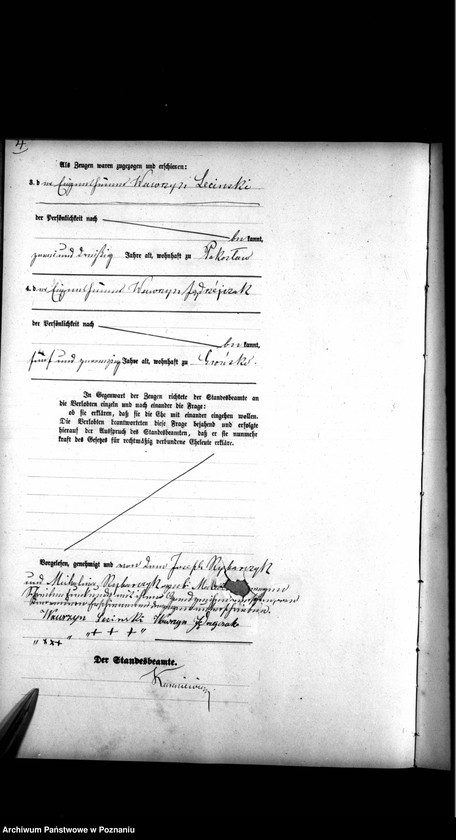 4.
Als Zeugen waren zugezogen und erschienen:
3. der Eigenthümer Wawrzyn Lecinski
der Persönlichkeit nach
bekannt,
zwei und dreißig Jahre alt, wohnhaft zu Pakoslaw
4. der Eigenthümer Wawrzyn Jędrzejczak
der Persönlichkeit nach
bekannt,
fünf und zwanzig Jahre alt, wohnhaft zu Grońsko.
In Gegenwart der Zeugen richtete der Standesbeamte an
die Verlobten einzeln und nach einander die Frage:
ob sie erklären, daß sie die Ehe mit einander eingehen wollen.
Die Verlobten beantworteten diese Frage bejahend und erfolgte
hierauf der Ausspruch des Standesbeamten, daß er sie nunmehr
kraft des Gesetzes für rechtmäßig verbundene Eheleute erkläre.
Vorgelesen, genehmigt und von dem Joseph Rybarczyk
und Michalina Rybarczyk geb. wegen
Schreibens
Wawrzyn Lecinski Wawrzyn
" + + + "
" " x x + "
Der Standesbeamte.
Archiwum Państwowe w Poznaniu